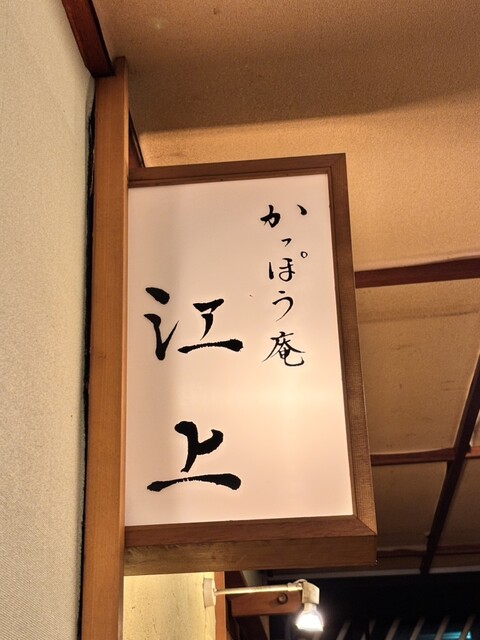 かっぽう庵
江上